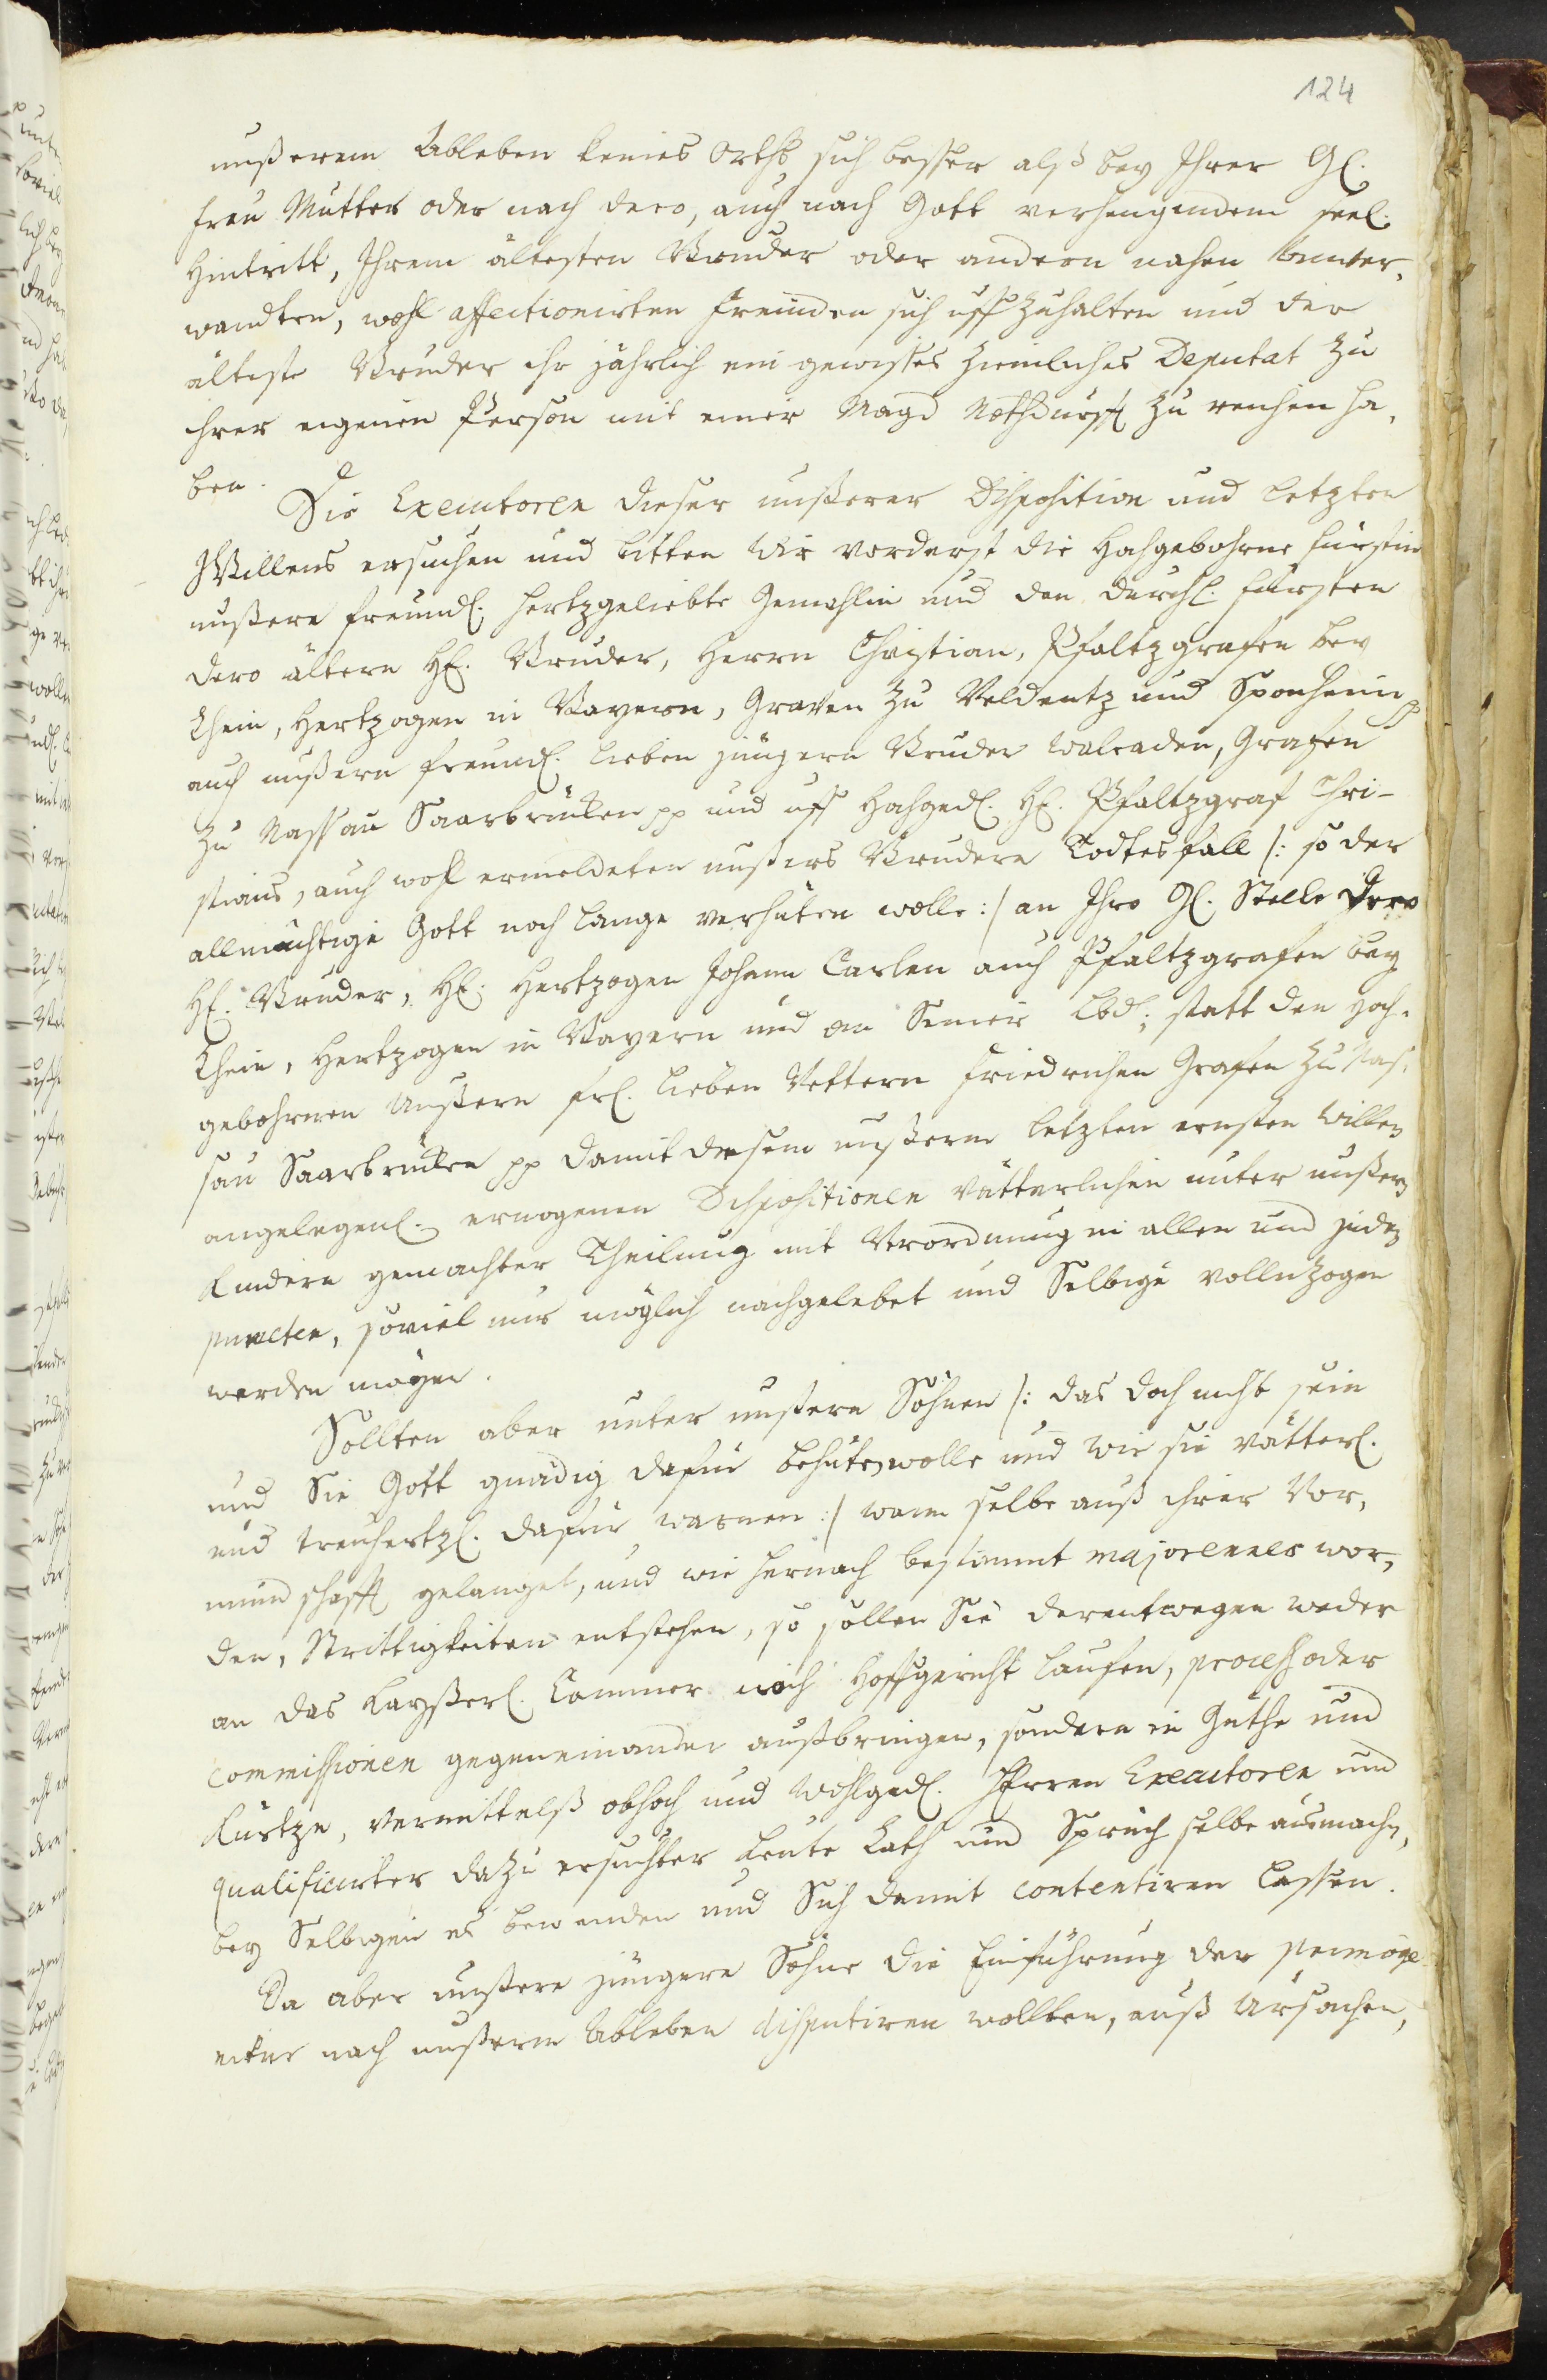 124
unßerem Ableben keines Orths sich besser alß bey Ihrer Gl.
Frau Mutter oder nach dero, auch nach Gott verhengendem seel.
Hintritt, Ihrem ältesten Bruder oder andern nahen Anver,
wandten, wohl affectionirten Freünden sich uffzuhalten und der
älteste Bruder ihr jährlich ein gewisses ziemliches Deputat zu
ihrer eigenen Person mit einer Magd Nothdurfft zu reichen ha,
ben.
Die Executoren dieser unßerer Disposition und letzten
Willens ersuchen und bitten Wir vorderst die Hochgebohrne Fürstin
unßere freundl. hertzgeliebte Gemahlin und den Durchl. Fürsten
dero ältern H. Bruder, Herrn Christian, Pfaltzgrafen bey
Rhein, Hertzogen in Bayern, Graven zu Veldentz und Sponheim
auch unßern freundl. lieben jüngern Bruder Walraden, Grafen
zu Nassau Saarbrücken pp und uff Hochgedl. H. Pfaltzgraf Chri-
stians, auch wohl ermeldeten unßers Brudern Todtesfall /: so der
allmächtige Gott noch lange verhüten wolle :/ an Ihro Gl. Stelle Dero
H. Bruder, H. Hertzogen Johann Carlen auch Pfaltzgrafen bey
Rhein, Hertzogen in Bayern und an Seiner Lbd. statt den Hoch-
gebohrnen Unßern frl. lieben Vettern Friedrichen Grafen zu Nas,
sau Saarbrücken pp damit diesem unßerm letzten ernsten Willen
angelegenl. erwogenen Dispositionen vätterlichen unter unßern
Kindern gemachter Theilung und Verordnung in allen und jeden
puncten, soviel nur möglich nachgelebet und Selbige vollnzogen
werden mögen.
Sollten aber unter unßern Söhnen /: das doch nicht sein
und Sie Gott gnädig dafür behüten wolle und wir sie vätterl.
und treuhertzl. dafür warnen :/ wann selbe auß ihrer Vor,
mundschafft gelanget, und wie hernach bestimmt majorennes wor,
den, Strittigkeiten entstehen, so sollen Sie derentwegen weder
an das Kayßerl. Cammer noch Hoffgericht laufen, process oder
commissionen gegeneinander außbringen, sondern in Güthe und
Kürtze, vermittelß obhoch und Wohlgedl. Herren Executoren und
qualificirter dazu ersuchter Leute Rath und Spruch selbe ausmachen,
bey Selbigen es bewenden und Sich damit contentiren lassen.
Da aber unßere jüngere Söhne die Einführung der primoge
nitur nach unßerm Ableben disputiren wollten, auß Ursachen,